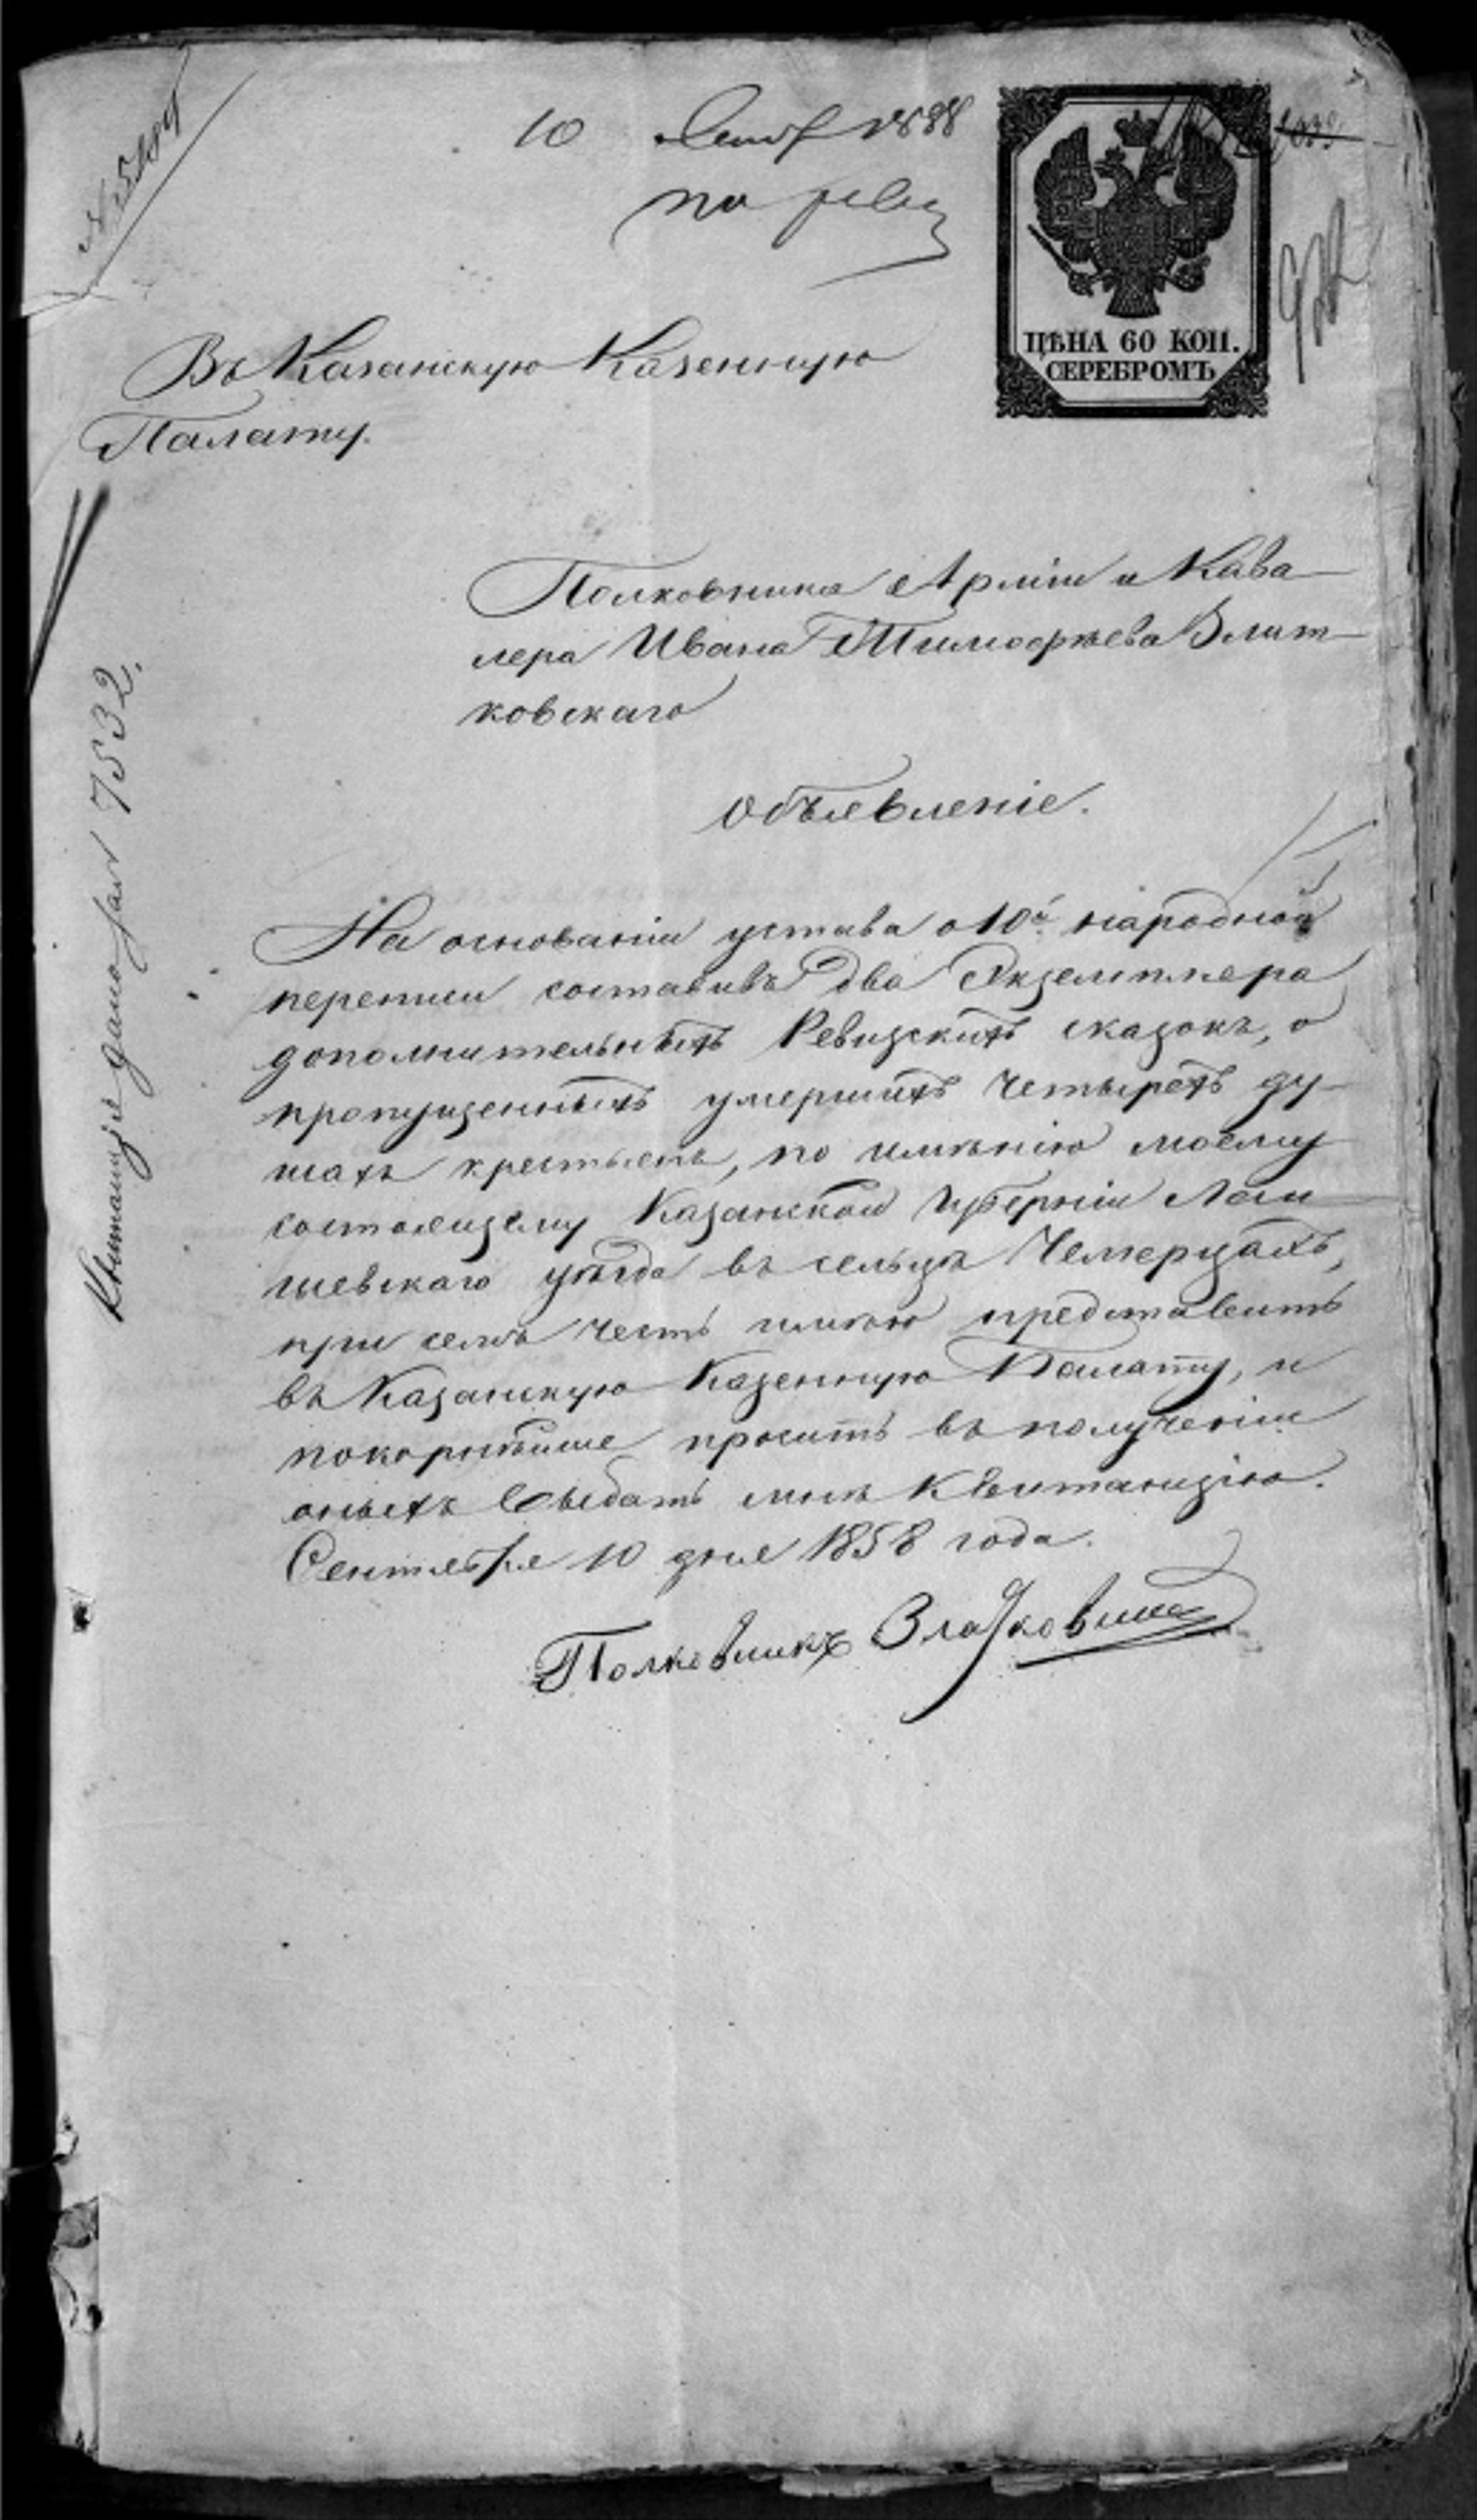 10 Сент 1858
по реви
ЦѢНА 60 КОП.
СЕРЕБРОМЪ
Въ Казанскую Казенную
Палату.
Полковника Арміи и Кава
лера Ивана Тимофѣева Злат
ковскаго
Объявленіе.
На основаніи устава о 10й народной
переписи составивъ два Экземпляра
дополнительныхъ Ревизскихъ сказокъ, о
пропущенныхъ умершихъ четырехъ ду-
шахъ крестьянъ, по имѣнію моему
состоящему Казанской Губерніи Лаи
шевскаго уѣзда въ сельцѣ Чемерцахъ,
при семъ честь имѣю представить
въ Казанскую Казенную Палату, и
покорнѣйше просить въ полученіи
оныхъ выдать мнѣ Квитанцію.
Сентября 10 дня 1858 года.
Полковникъ Златковскій
Квитанція дана за № 7532.